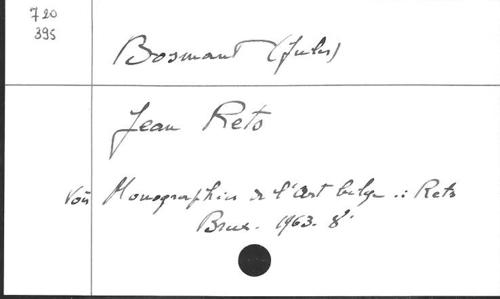 720
395
Bosmant (Jules)
Jean Rets
Voir Monographies de l'Art belge : Rets
Brux. 1963. 8°.